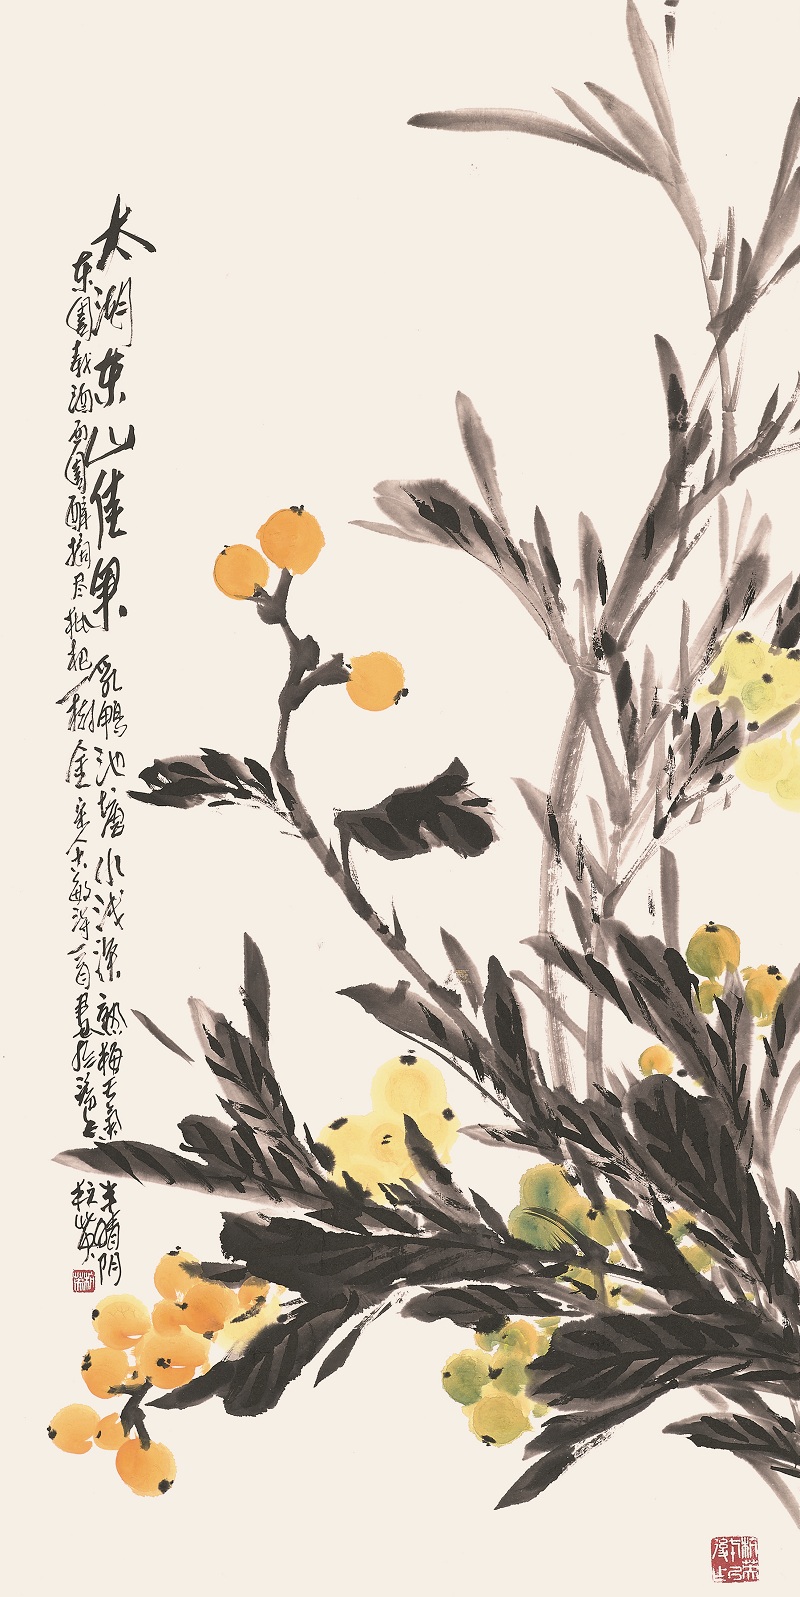 太湖东山佳果
乳鸭池塘水浅深熟梅天气半晴阴
东园载酒西园醉摘尽枇杷一树金宋人敏诗一首画於
杭英